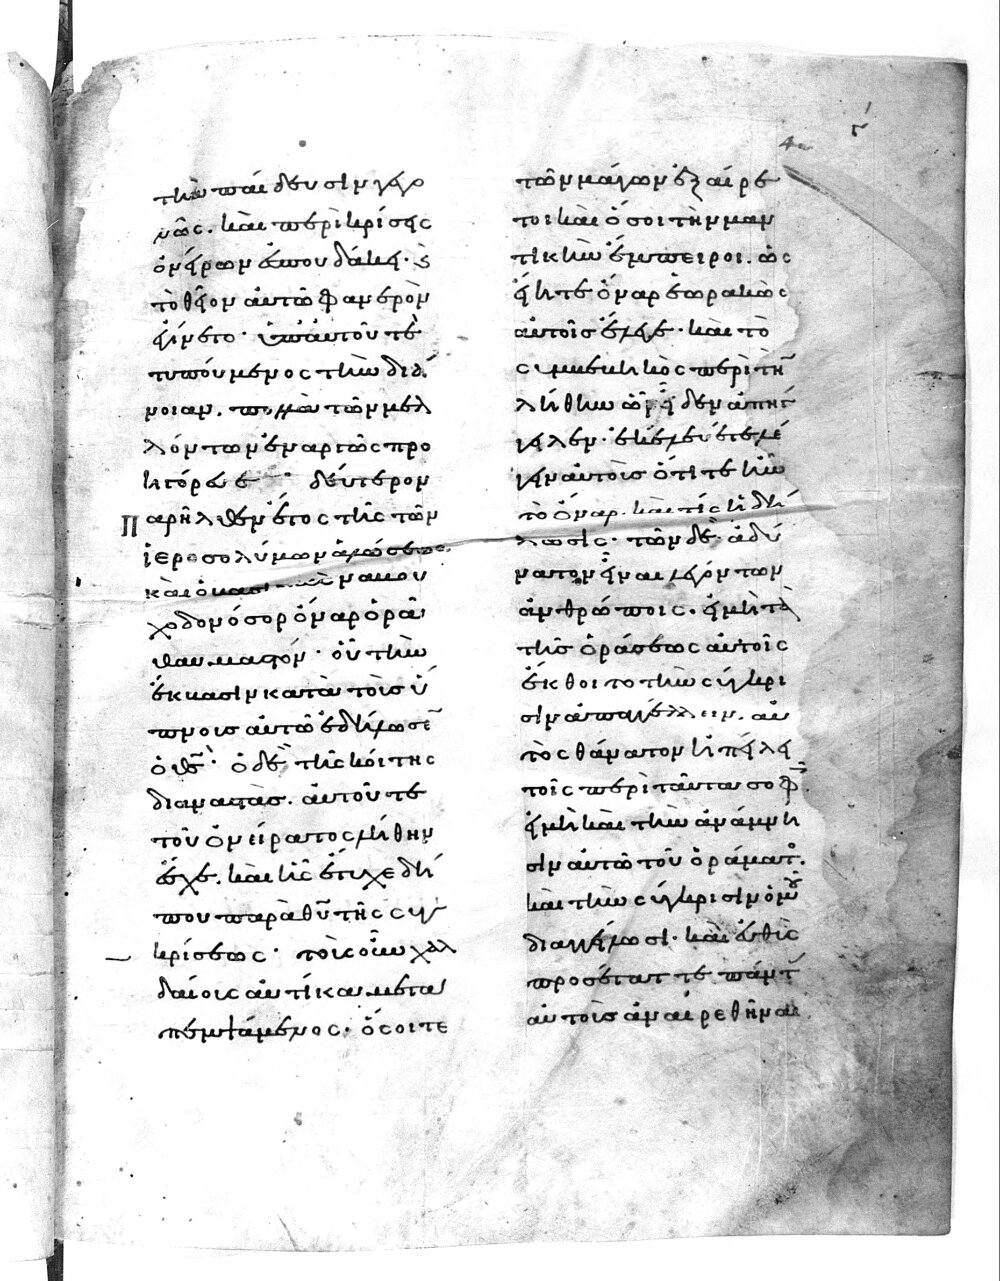 τὴν παίδευσιν γεγο
νῶς. καὶ περὶ κρίσεις
ὀνείρων ἐσπουδάκει· ὃ
τὸ θεῖον αὐτῶ φανερὸν
ἐγίνετο· ὑπ αὐτοῦ τὲ
τυπούμενος τὴν διά
νοιαν. πολλὰ τῶν μελ
λόντων ἐναργῶς προ
ηγόρευε δεύτερον
παρῆλθεν ἔτος τῆς τῶν
ἱεροσολύμων ἁλώσεως.
καὶ ὁ ναβου
χοδονόσορ ὄναρ ὁρᾶ
θαυμαστόν· οὗ τὴν
ἔκβασιν κατὰ τοὺς ὕ
πνους αὐτῶ ἐδήλωσεν
ὁ θς· ὁ δὲ τῆς κοίτης
διαναστὰς. αὐτοῦ τε
τοῦ ὀνείρατος λήθην
ἔσχε. καὶ ἧς ἔτυχε δή
που παρὰ θυ τῆς συγ
κρίσεως· τοὺς οὖν χαλ
δαίους αὐτίκα μετα
πεμψάμενος· ὅσοι τε
τῶν μάγων ἐξαίρε
τοι καὶ ὅσοι τὴν μαν
τικὴν ἔμπειροι. ὡς
εἴη τε ὄναρ ἑωρακὼς
αὐτοῖς ἔλεγε· καὶ τὸ
συμβεβηκὸς περὶ τὴν
λήθην ὧν εἶδεν ἀπήγ
γελλεν· ἐκέλευέ τε λέ
γειν αὐτοὺς ὅτι τε ἦν
τὸ ὄναρ. καὶ τίς ἡ δή
λωσις· τῶν δὲ ἀδύ
νατον εἶναι λεγόντων
ἀνθρώποις. εἰ μὴ τὰ
τῆς ὁράσεως αὐτοῖς
ἔκθοιτο τὴν σύγκρι
σιν ἀπαγγέλλειν. αὐ
τὸς θάνατον ἠπείλει
τοῖς περὶ ταῦτα σοφ
εἰ μὴ καὶ τὴν ἀνάμνη
σιν αὐτῶ τοῦ ὁράματος
καὶ τὴν σύγκρισιν ὁμοῦ
διαγγείλωσι· καὶ εὐθὺς
προσέταττε πάντ
αὐτοὺς ἀναιρεθῆναι.